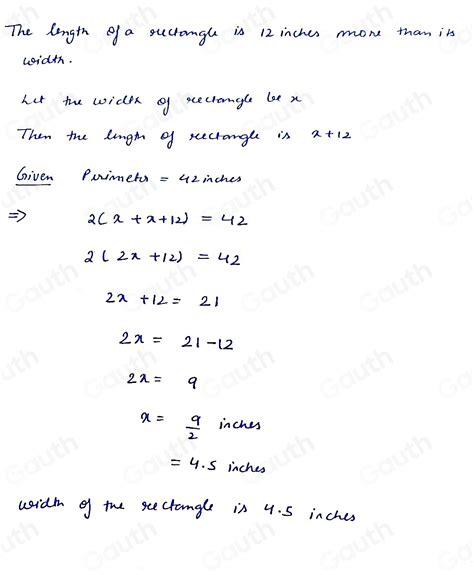 The length of a rectangle is 12 inches more than its
width.
Let the width of rectangle be x
Then the length of rectangle is x+12
Given Perimeter = 42 inches
⇒ 2(x + x+12) = 42
2(2x +12) = 42
2x +12 = 21
2x = 21-12
2x = 9
x = 9/2 inches
= 4.5 inches
width of the rectangle is 4.5 inches